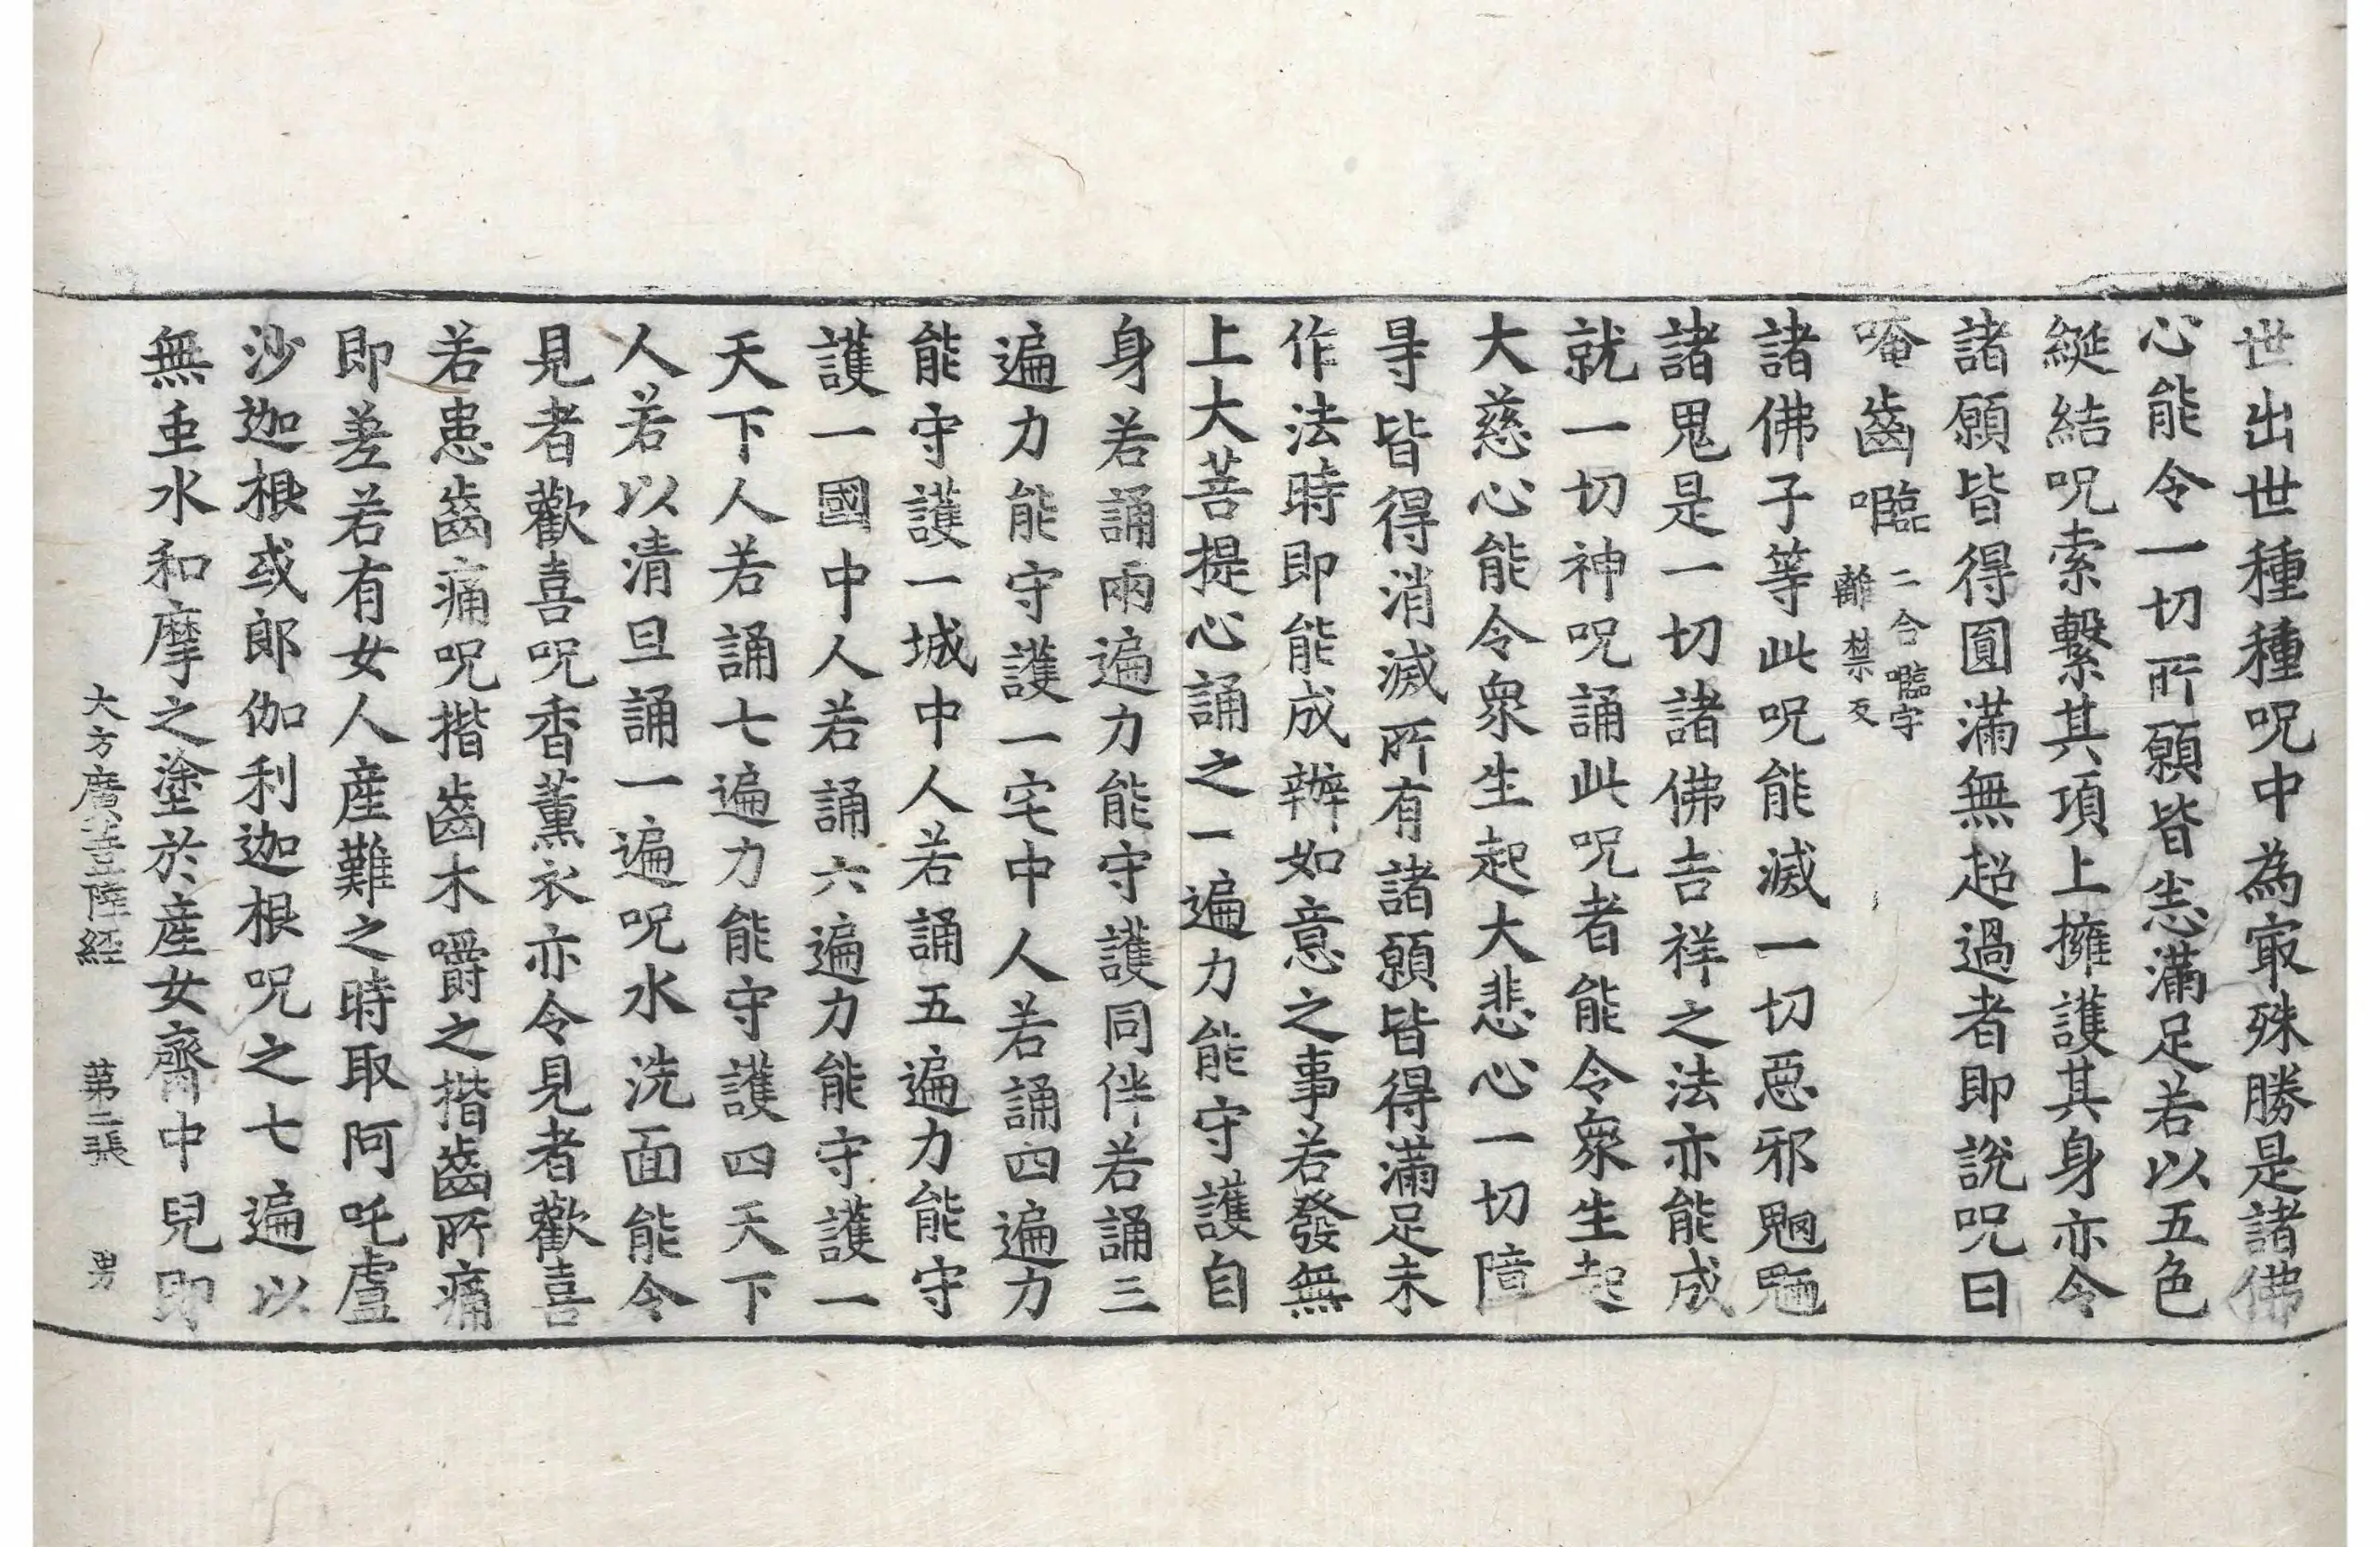 世出世種種呪中為冣殊勝是諸佛
心能令一切所願皆悉滿足若以五色
綖結呪索繫其項上擁護其身亦令
諸願皆得圓滿無超過者即說呪曰
唵齒㘕二合㘕字離禁反
諸佛子等此呪能滅一切惡邪魍魎
諸鬼是一切諸佛吉祥之法亦能成
就一切神呪誦此呪者能令衆生起
大慈心能令衆生起大悲心一切障
㝵皆得消滅所有諸願皆得滿足未
作法時即能成辦如意之事若發無
上大菩提心誦之一遍力能守護自
身若誦兩遍力能守護同伴若誦三
遍力能守護一宅中人若誦四遍力
能守護一城中人若誦五遍力能守
護一國中人若誦六遍力能守護一
天下人若誦七遍力能守護四天下
人若以清旦誦一遍呪水洗面能令
見者歡喜呪香薰衣亦令見者歡喜
若患齒痛呪揩齒木嚼之揩齒所痛
即差若有女人産難之時取阿吒盧
沙迦根或郎伽利迦根呪之七遍以
無虫水和摩之塗於産女齊中兒即
大方廣菩薩経　第二張　男